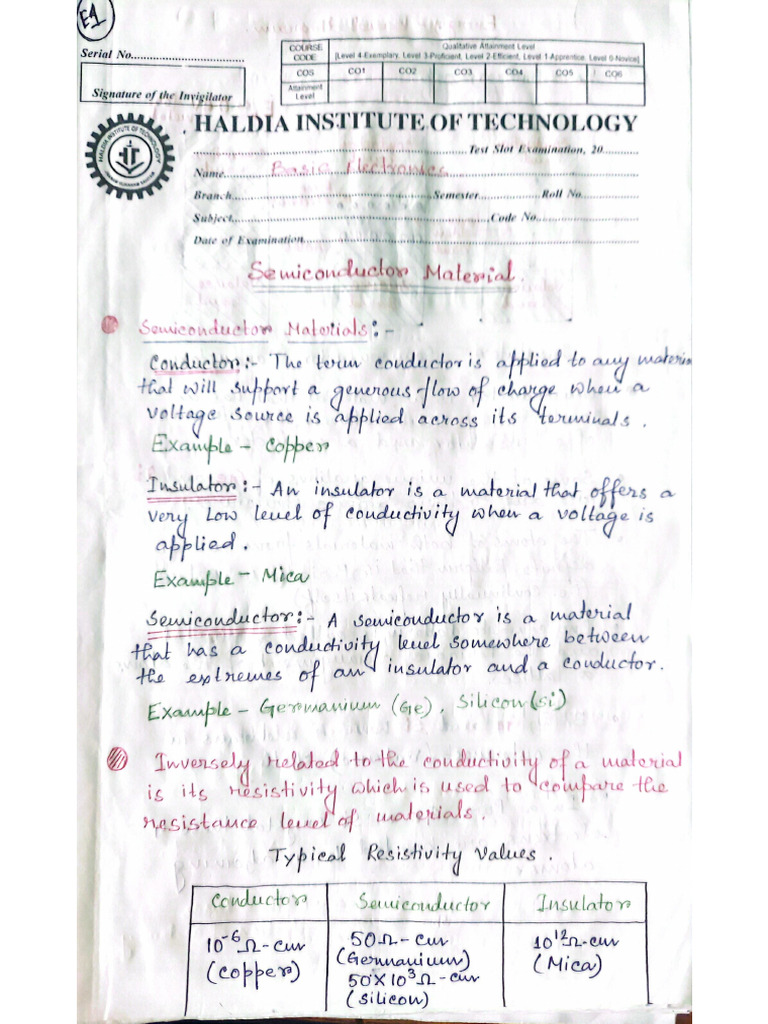 E1
Serial No.
Signature of the Invigilator
COURSE CODE
Qualitative Attainment Level
[Level 4-Exemplary, Level 3-Proficient, Level 2-Efficient, Level 1-Apprentice, Level 0-Novice]
COS CO1 CO2 CO3 CO4 CO5 CO6
Attainment Level
HALDIA INSTITUTE OF TECHNOLOGY
Test Slot Examination, 20
Name Basic Electronics
Branch Semester Roll No.
Subject Code No.
Date of Examination
Semiconductor Material.
Semiconductor Materials:-
Conductor:- The term conductor is applied to any material
that will support a generous flow of charge when a
voltage source is applied across its terminals.
Example - Copper
Insulator:- An insulator is a material that offers a
very Low level of conductivity when a voltage is
applied.
Example - Mica
Semiconductor:- A semiconductor is a material
that has a conductivity level somewhere between
the extremes of an insulator and a conductor.
Example - Germanium (Ge), Silicon (Si)
Inversely related to the conductivity of a material
is its resistivity which is used to compare the
resistance level of materials.
Typical Resistivity Values.
Conductor Semiconductor Insulator
10⁻⁶Ω-cm 50Ω-cm 10¹²Ω-cm
(Copper) (Germanium) (Mica)
50×10³Ω-cm
(Silicon)